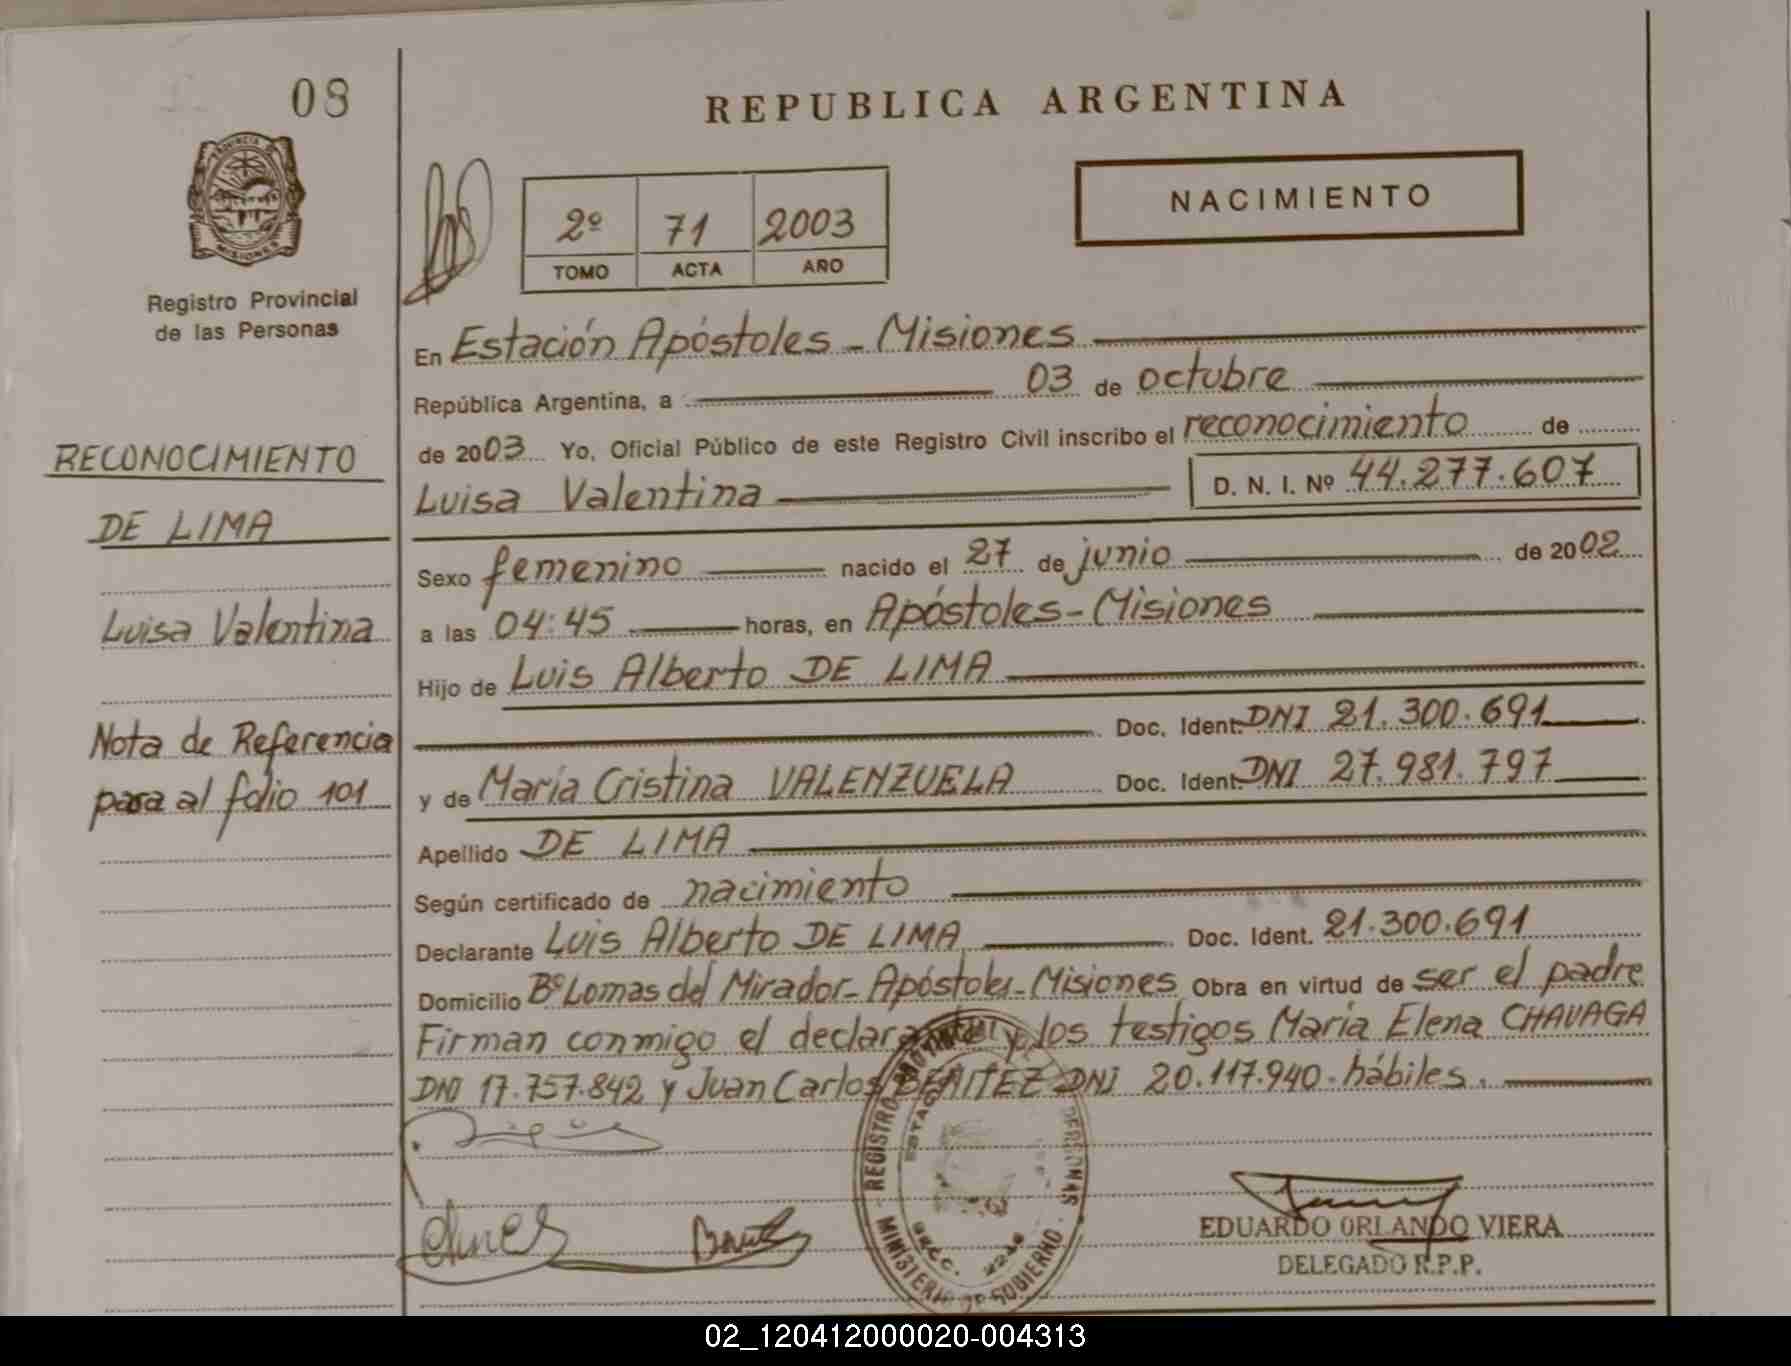 08
PROVINCIA DE
MISIONES
Registro Provincial
de las Personas
RECONOCIMIENTO
DE LIMA
Luisa Valentina
Nota de Referencia
para al folio 101
REPUBLICA ARGENTINA
2º 71 2003
TOMO ACTA AÑO
NACIMIENTO
En Estación Apóstoles - Misiones
República Argentina, a 03 de octubre
de 2003 Yo, Oficial Público de este Registro Civil inscribo el reconocimiento de
Luisa Valentina D. N. I. Nº 44.277.607
Sexo femenino nacido el 27 de junio de 2002
a las 04:45 horas, en Apóstoles - Misiones
Hijo de Luis Alberto DE LIMA
Doc. Ident. DNI 21.300.691
y de María Cristina VALENZUELA Doc. Ident. DNI 27.981.797
Apellido DE LIMA
Según certificado de nacimiento
Declarante Luis Alberto DE LIMA Doc. Ident. 21.300.691
Domicilio Bº Lomas del Mirador - Apóstoles - Misiones Obra en virtud de ser el padre
Firman conmigo el declarante y los testigos María Elena CHAVAGA
DNI 17.757.842 y Juan Carlos BENITEZ DNI 20.117.940 - hábiles.
REGISTRO PERSONAS
MINISTERIO DE GOBIERNO
EDUARDO ORLANDO VIERA
DELEGADO R.P.P.
02_120412000020-004313